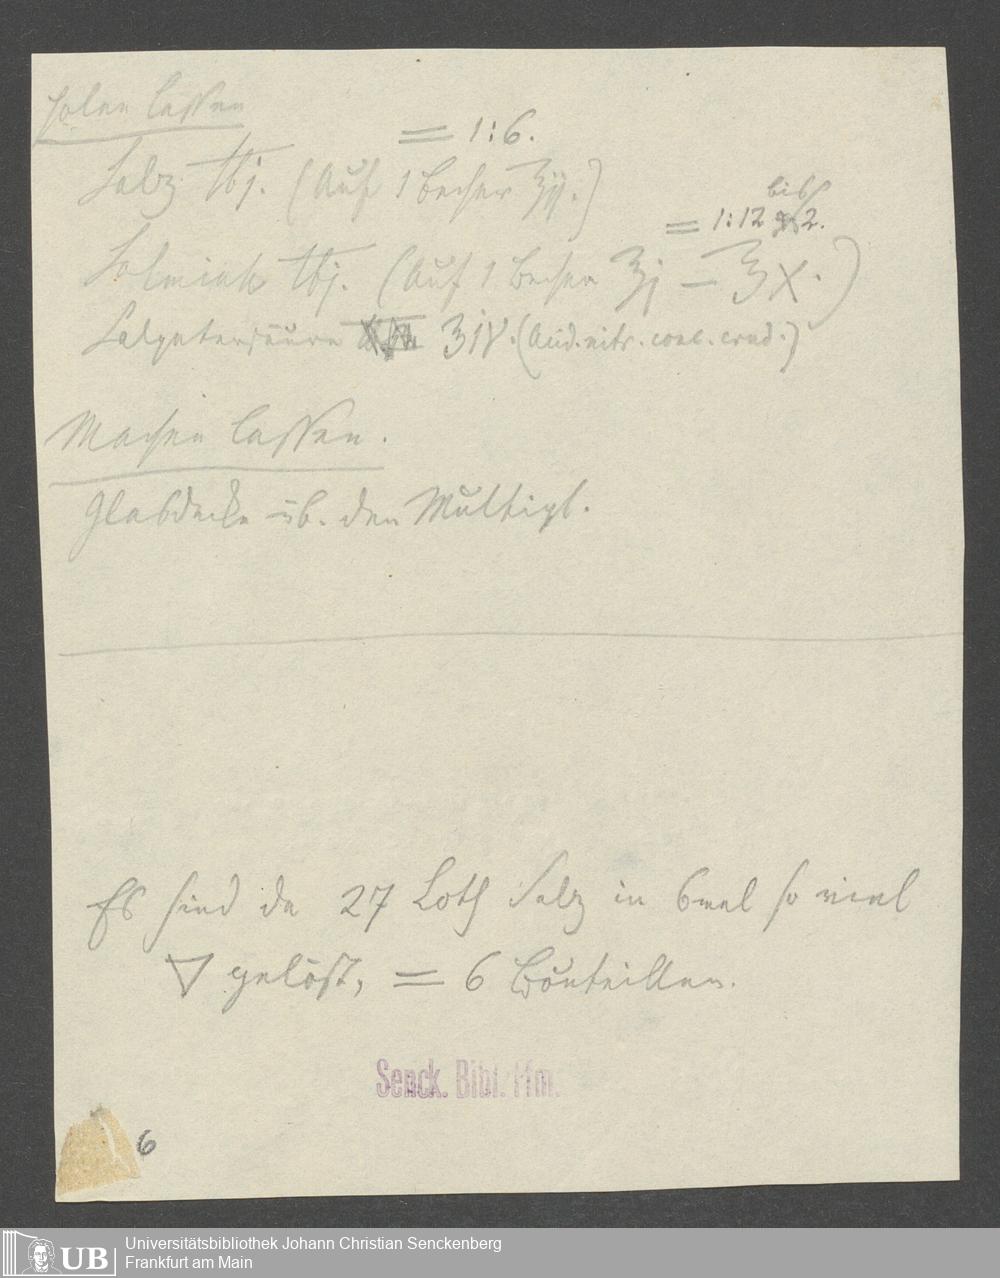 holen lassen
= 1:6.
Salz ℔j. (Auf 1 Becher ʒij.)
bis
= 1:12 2.
Salmiak ℔j. (Auf 1 Becher ʒj – ʒx.)
Salpetersäure ʒiv. (Acid. nitr. conc. crud.)
Machen lassen.
Glasdecke üb. den Multipl.
Es sind da 27 Loth Salz in 6mal so viel
▽ gelöst, = 6 Bouteillen.
Senck. Bibl. Ffm.
6
UB
Universitätsbibliothek Johann Christian Senckenberg
Frankfurt am Main